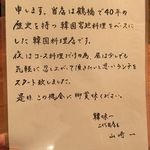 申します。当店は鶴橋で40年の
歴史を持つ韓国宮廷料理をベースに
した韓国料理店です。
夜はコース料理だけの為、昼は少しでも
気軽に召し上がって頂きたいと思いランチを
スタート致しました。
是非この機会に御賞味ください。
韓味一
二代目店主
山崎 一